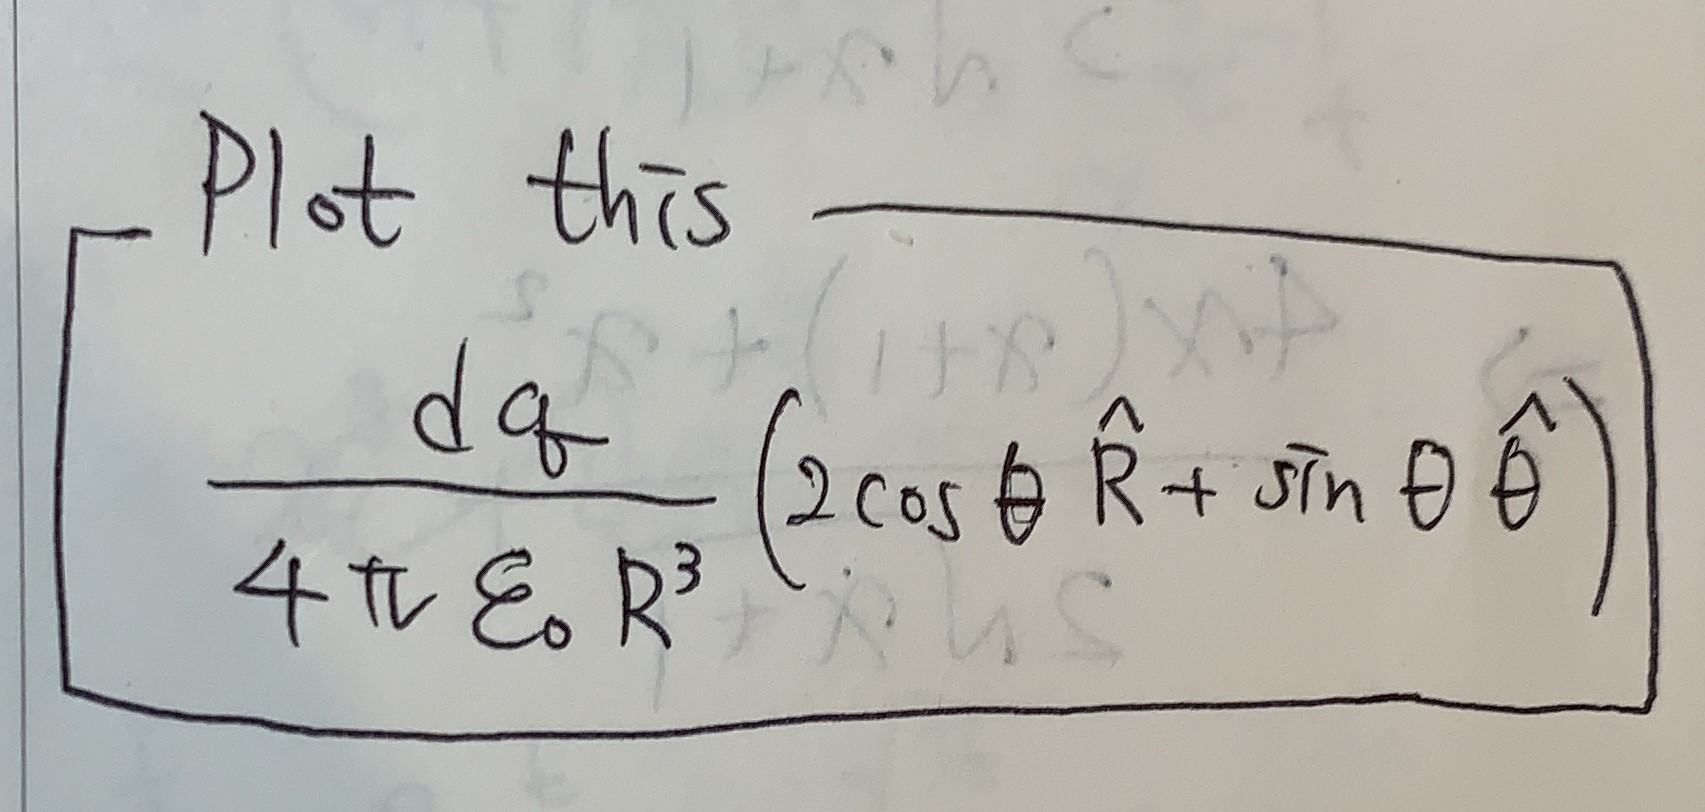 Plot this
dq
4π ε₀ R³
(2 cos θ R̂ + sin θ θ̂)